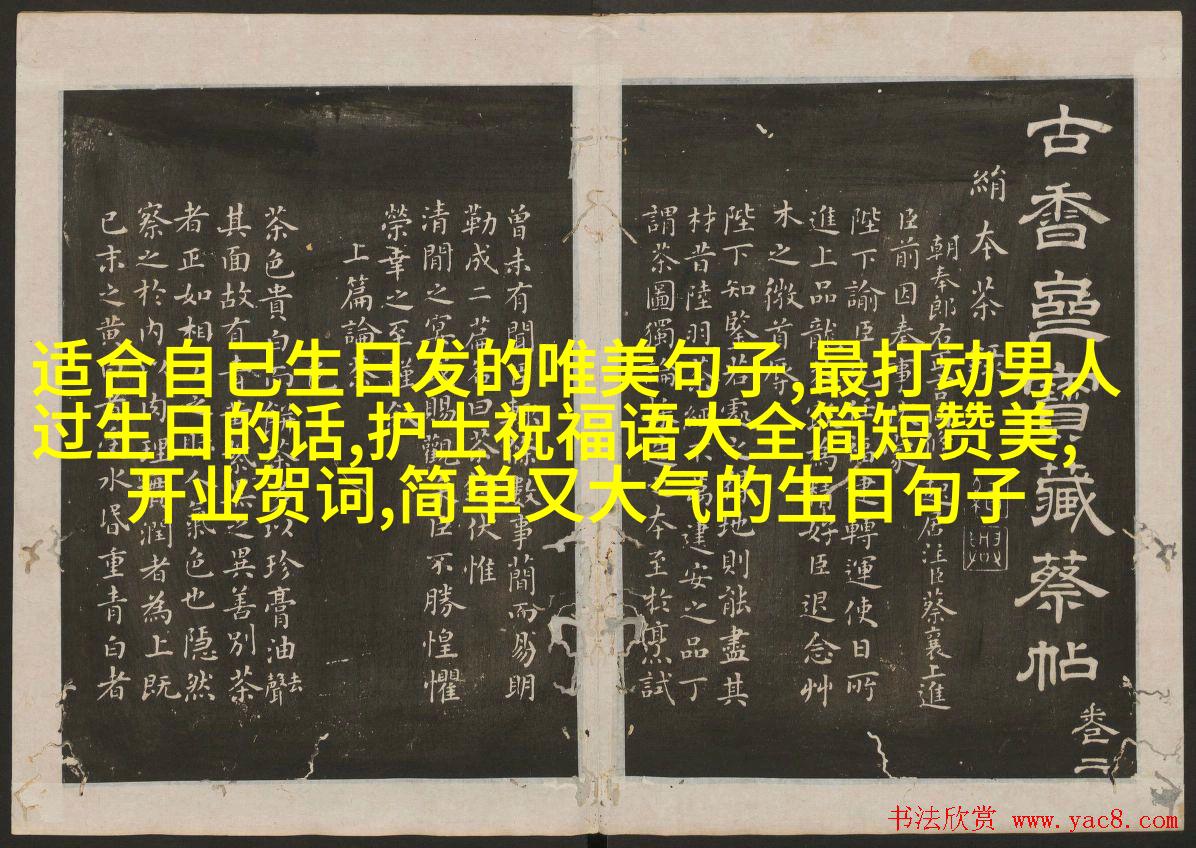 古香齋寶藏蔡帖
卷二
絹本茶
朝奉郎右正言
居注臣蔡襄上進
臣前因奏事
陛下諭臣
轉運使日所
進上品龍
木之微首
好臣退念艸
陛下知鑒若
地則能盡其
材昔陸羽
建安之品丁
謂茶圖獨
本至於烹試
曾未有聞
數事簡而易明
勒成二篇
伏惟
清閒之
賜觀
臣不勝惶懼
榮幸之至
上篇論
茶色貴白
以珍膏油
其面故有
之異善別茶
者正如相
氣色也隱然
察之於內
肉理
潤者為上既
已末之黃
水昏重青白者
适合自己生日发的唯美句子,最打动男人
过生日的话,护士祝福语大全简短赞美,
开业贺词,简单又大气的生日句子
书法欣赏 www.yac8.com